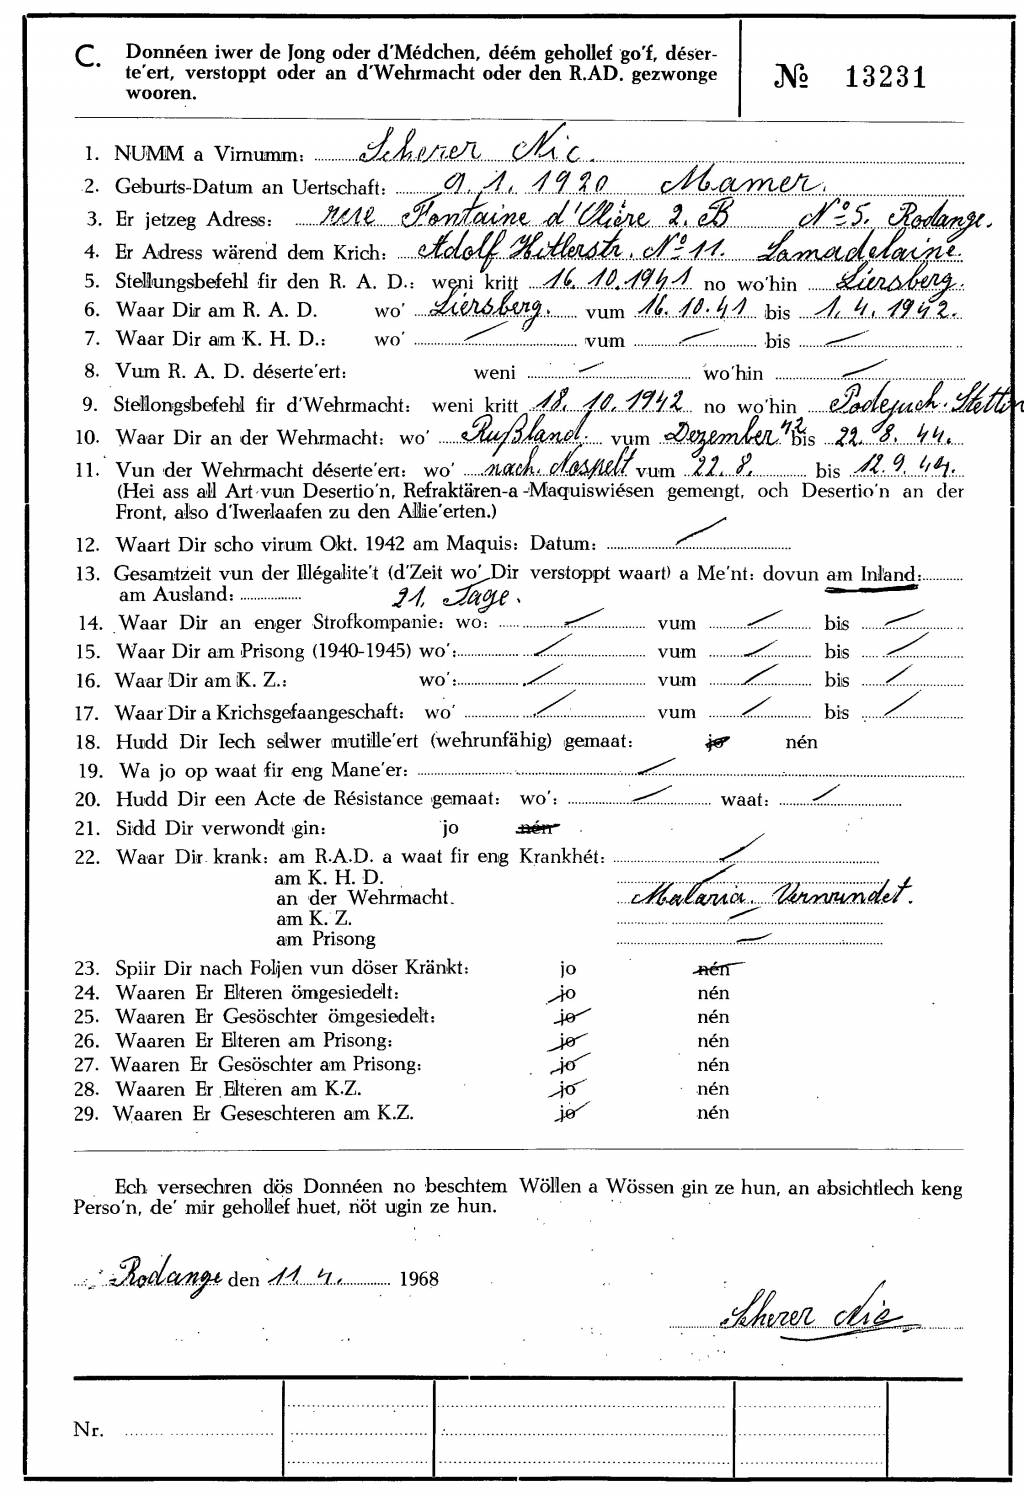 C. Donnéen iwer de Jong oder d'Médchen, déém gehollef go'f, déser-
te'ert, verstoppt oder an d'Wehrmacht oder den R.AD. gezwonge
wooren.
№ 13231
1. NUMM a Virnumm: Scherer Nic.
2. Geburts-Datum an Uertschaft: 9. 1. 1920 Mamer.
3. Er jetzeg Adress: rue Fontaine d'Olière 2. B № 5. Rodange.
4. Er Adress wärend dem Krich: Adolf Hitlerstr. № 11. Lamadelaine.
5. Stellungsbefehl fir den R. A. D.: weni kritt 16. 10. 1941 no wo'hin Liersberg.
6. Waar Dir am R. A. D. wo' Liersberg. vum 16. 10. 41 bis 1. 4. 1942.
7. Waar Dir am K. H. D.: wo' / vum / bis /
8. Vum R. A. D. déserte'ert: weni / wo'hin /
9. Stellongsbefehl fir d'Wehrmacht: weni kritt 18. 10. 1942 no wo'hin Podejuch. Stettin
10. Waar Dir an der Wehrmacht: wo' Rußland. vum Dezember 42 bis 22. 8. 44.
11. Vun der Wehrmacht déserte'ert: wo' nach. Nospelt vum 22. 8. bis 12. 9. 44.
(Hei ass all Art vun Desertio'n, Refraktären-a -Maquiswiésen gemengt, och Desertio'n an der
Front, also d'Iwerlaafen zu den Allie'erten.)
12. Waart Dir scho virum Okt. 1942 am Maquis: Datum: /
13. Gesamtzeit vun der Illégalite't (d'Zeit wo' Dir verstoppt waart) a Me'nt: dovun am Inland:
am Ausland: 21. Tage.
14. Waar Dir an enger Strofkompanie: wo: / vum / bis /
15. Waar Dir am Prisong (1940-1945) wo': / vum / bis /
16. Waar Dir am K. Z.: wo': / vum / bis /
17. Waar Dir a Krichsgefaangeschaft: wo' / vum / bis /
18. Hudd Dir Iech selwer mutille'ert (wehrunfähig) gemaat: jo nén
19. Wa jo op waat fir eng Mane'er: /
20. Hudd Dir een Acte de Résistance gemaat: wo': / waat: /
21. Sidd Dir verwondt gin: jo nén
22. Waar Dir krank: am R.A.D. a waat fir eng Krankhét: /
am K. H. D. /
an der Wehrmacht. Malaria. Verwundet.
am K. Z. /
am Prisong /
23. Spiir Dir nach Foljen vun döser Kränkt: jo nén
24. Waaren Er Elteren ömgesiedelt: jo nén
25. Waaren Er Gesöschter ömgesiedelt: jo nén
26. Waaren Er Elteren am Prisong: jo nén
27. Waaren Er Gesöschter am Prisong: jo nén
28. Waaren Er Elteren am K.Z. jo nén
29. Waaren Er Geseschteren am K.Z. jo nén
Ech versechren dös Donnéen no beschtem Wöllen a Wössen gin ze hun, an absichtlech keng
Perso'n, de' mir gehollef huet, nöt ugin ze hun.
Rodange den 11. 4. 1968
Scherer Nic
Nr.